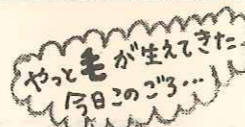 やっと毛が生えてきた
今日このごろ…